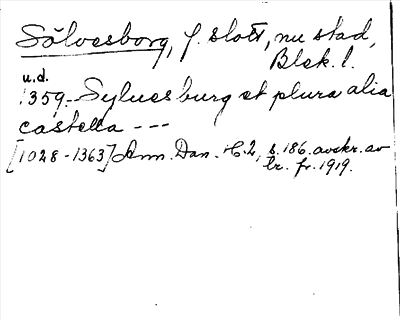 Sölvesborg, f. slott, nu stad,
Blek. l.
u.d.
1359. Syluesburg et plura alia
castella ---
[1028-1363] Ann. Dan. H.2, s.186. avskr. av
br. fr. 1919.